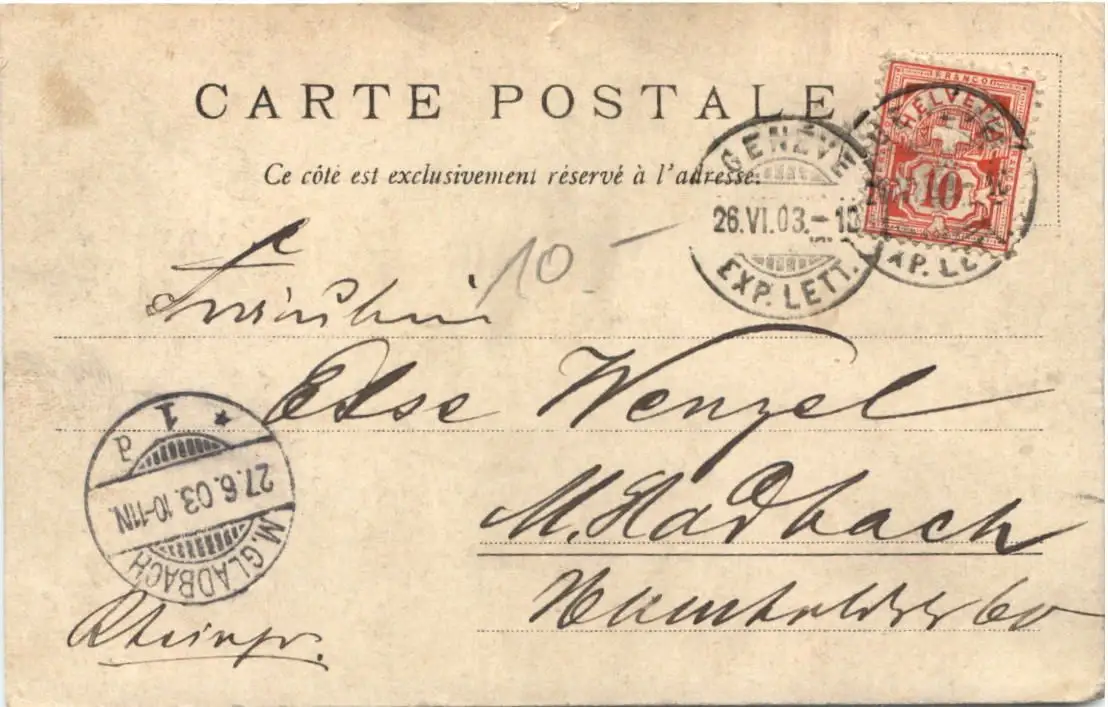 CARTE POSTALE
Ce côté est exclusivement réservé à l'adresse.
FRANCO
HELVETIA
10
GENÈVE
26.VI.03.-10
EXP. LETT.
EXP. LETT.
10-
Fräulein
Else Wenzel
M. Gladbach
Rheinpr.
M. GLADBACH
27.6.03. 10-11N.
* 1 d